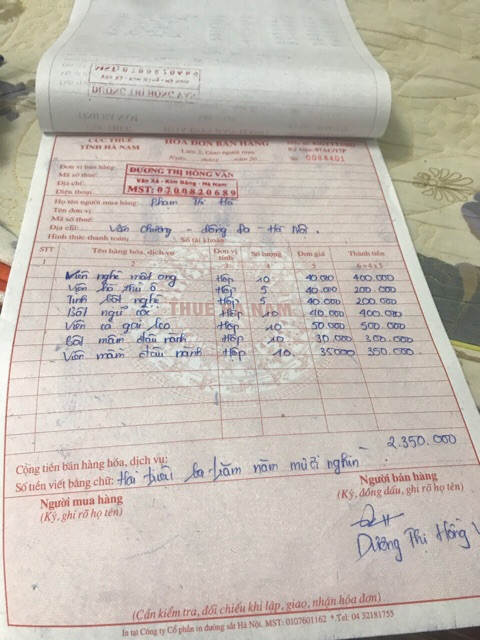 CỤC THUẾ
TỈNH HÀ NAM
HÓA ĐƠN BÁN HÀNG
Liên 2: Giao người mua
Ngày tháng năm 20
0084401
Đơn vị bán hàng:
DƯƠNG THỊ HỒNG VÂN
Mã số thuế:
Văn Xá - Kim Bảng - Hà Nam
Địa chỉ:
MST: 0700820689
Điện thoại
Họ tên người mua hàng: Phạm Thị Hà
Tên đơn vị:
Mã số thuế:
Địa chỉ: Văn Chương - Đống Đa - Hà Nội.
Hình thức thanh toán: Số tài khoản:
STT Tên hàng hóa, dịch vụ Đơn vị tính Số lượng Đơn giá Thành tiền
1 2 3 4 5 6=4x5
Viên nghệ mật ong Hộp 10 40.000 400.000
Viên hà thủ ô Hộp 5 40.000 200.000
Tinh bột nghệ Hộp 5 40.000 200.000
Bột ngũ cốc Hộp 10 40.000 400.000
Viên cà gai leo Hộp 10 50.000 500.000
Bột mầm đậu nành Hộp 10 30.000 300.000
Viên mầm đậu nành Hộp 10 35000 350.000
THUẾ HÀ NAM
Cộng tiền bán hàng hóa, dịch vụ: 2.350.000
Số tiền viết bằng chữ: Hai triệu ba trăm năm mươi nghìn
Người mua hàng
(Ký, ghi rõ họ tên)
Người bán hàng
(Ký, đóng dấu, ghi rõ họ tên)
Dương Thị Hồng V
(Cần kiểm tra, đối chiếu khi lập, giao, nhận hóa đơn)
In tại Công ty Cổ phần in đường sắt Hà Nội. MST: 0107601162 * Tel: 04 32181755